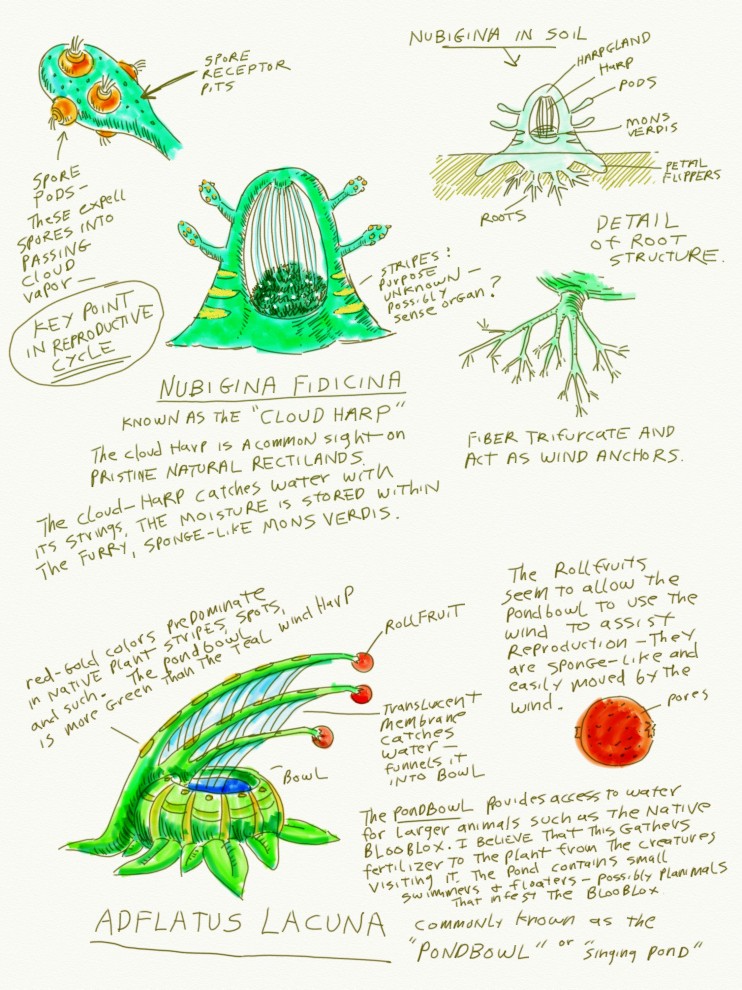 SPORE
RECEPTOR
PITS
SPORE
PODS-
These expell
SPORES INTO
PASSING
CLOUD
VAPOR-
KEY POINT
IN REPRODUCTIVE
CYCLE
NUBIGINA IN SOIL
HARPGLAND
HARP
PODS
MONS
VERDIS
PETAL
FLIPPERS
ROOTS
DETAIL
OF ROOT
STRUCTURE.
STRIPES:
PURPOSE
UNKNOWN-
POSSIBLY
sense organ?
NUBIGINA FIDICINA
KNOWN AS THE "CLOUD HARP"
The cloud Harp is A common sight on
PRISTINE NATURAL RECTILANDS.
The cloud-HARP catches water with
its strings. THE MOISTURE IS STORED WITHIN
The FURRY, SPONGE-LIKE MONS VERDIS.
FIBER TRIFURCATE AND
ACT AS WIND ANCHORS.
red-Gold colors preDominate
in Native Plant STRIPES, SPOTS,
and such- The pondBowl
is more Green than the Teal wind HarP
ROLLFRUIT
TRANSLUCENT
membrane
catches
water-
funnels it
INTO BOWL
BOWL
The Rollfruits
seem to allow the
Pondbowl to use the
wind to assist
Reproduction-They
are sponge-like and
easily moved by the
wind.
pores
The PONDBOWL Povides access to water
for Larger animals such as The Native
BLOOBLOX. I BELIEVE That this Gathers
fertilizer To The Plant from The creatures
visiting it. The Pond contains small
swimmers & floaters-possibly Planimals
That infest The BLOOBLOX.
ADFLATUS LACUNA
commonly known as the
"PONDBOWL" or "Singing Pond"